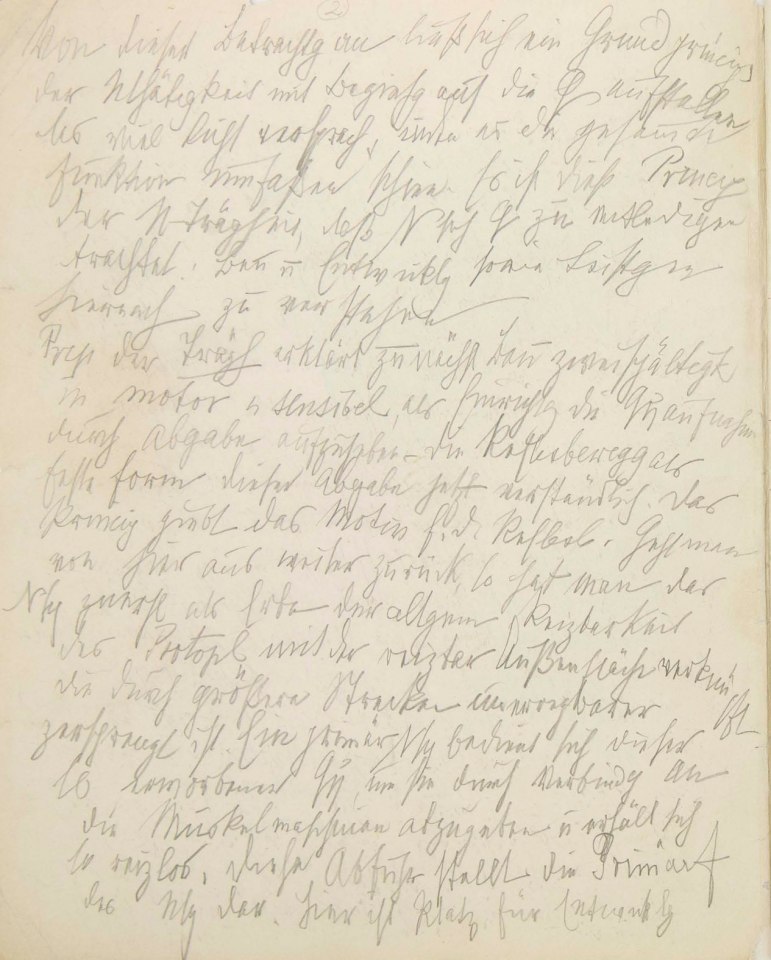 2
Von dieser Betrachtg an ließ sich ein Grundprincip
der Nthätigkeit mit Beziehg auf die Q aufstellen
das viel Licht versprach, indem es die gesammte
Funktion umfaßen schien. Es ist dieß Princip
der N-Trägheit, daß N sich Q zu entledigen
trachtet. Bau u Entwicklg sowie Leistgen
hiernach zu verstehen
Pcip der Trägh erklärt zunächst Bau zwiespältigkt
in motor u sensibel, als Einrichtg die Qη aufnahme
durch Abgabe aufzuheben – Die Reflexbewegg als
feste Form dieser Abgabe jetzt verständlich. Das
Princip giebt das Motiv f. d. Reflbew. Geht man
von hier aus weiter zurück, so hat man das
Nsy zuerst als Erbe der allgem Reizbarkeit
des Protopl mit der reizbar Außenfläche verknüpft
die durch größere Strecken unerregbarer
zersprengt ist. Ein primär Nsy bedient sich dieser
so erworbenen Qη um sie durch Verbindg an
die Muskelmaschinen abzugeben u erhält sich
so reizlos. Diese Abfuhr stellt die Primärf
des Nsy dar. Hier ist Platz für Entwicklg